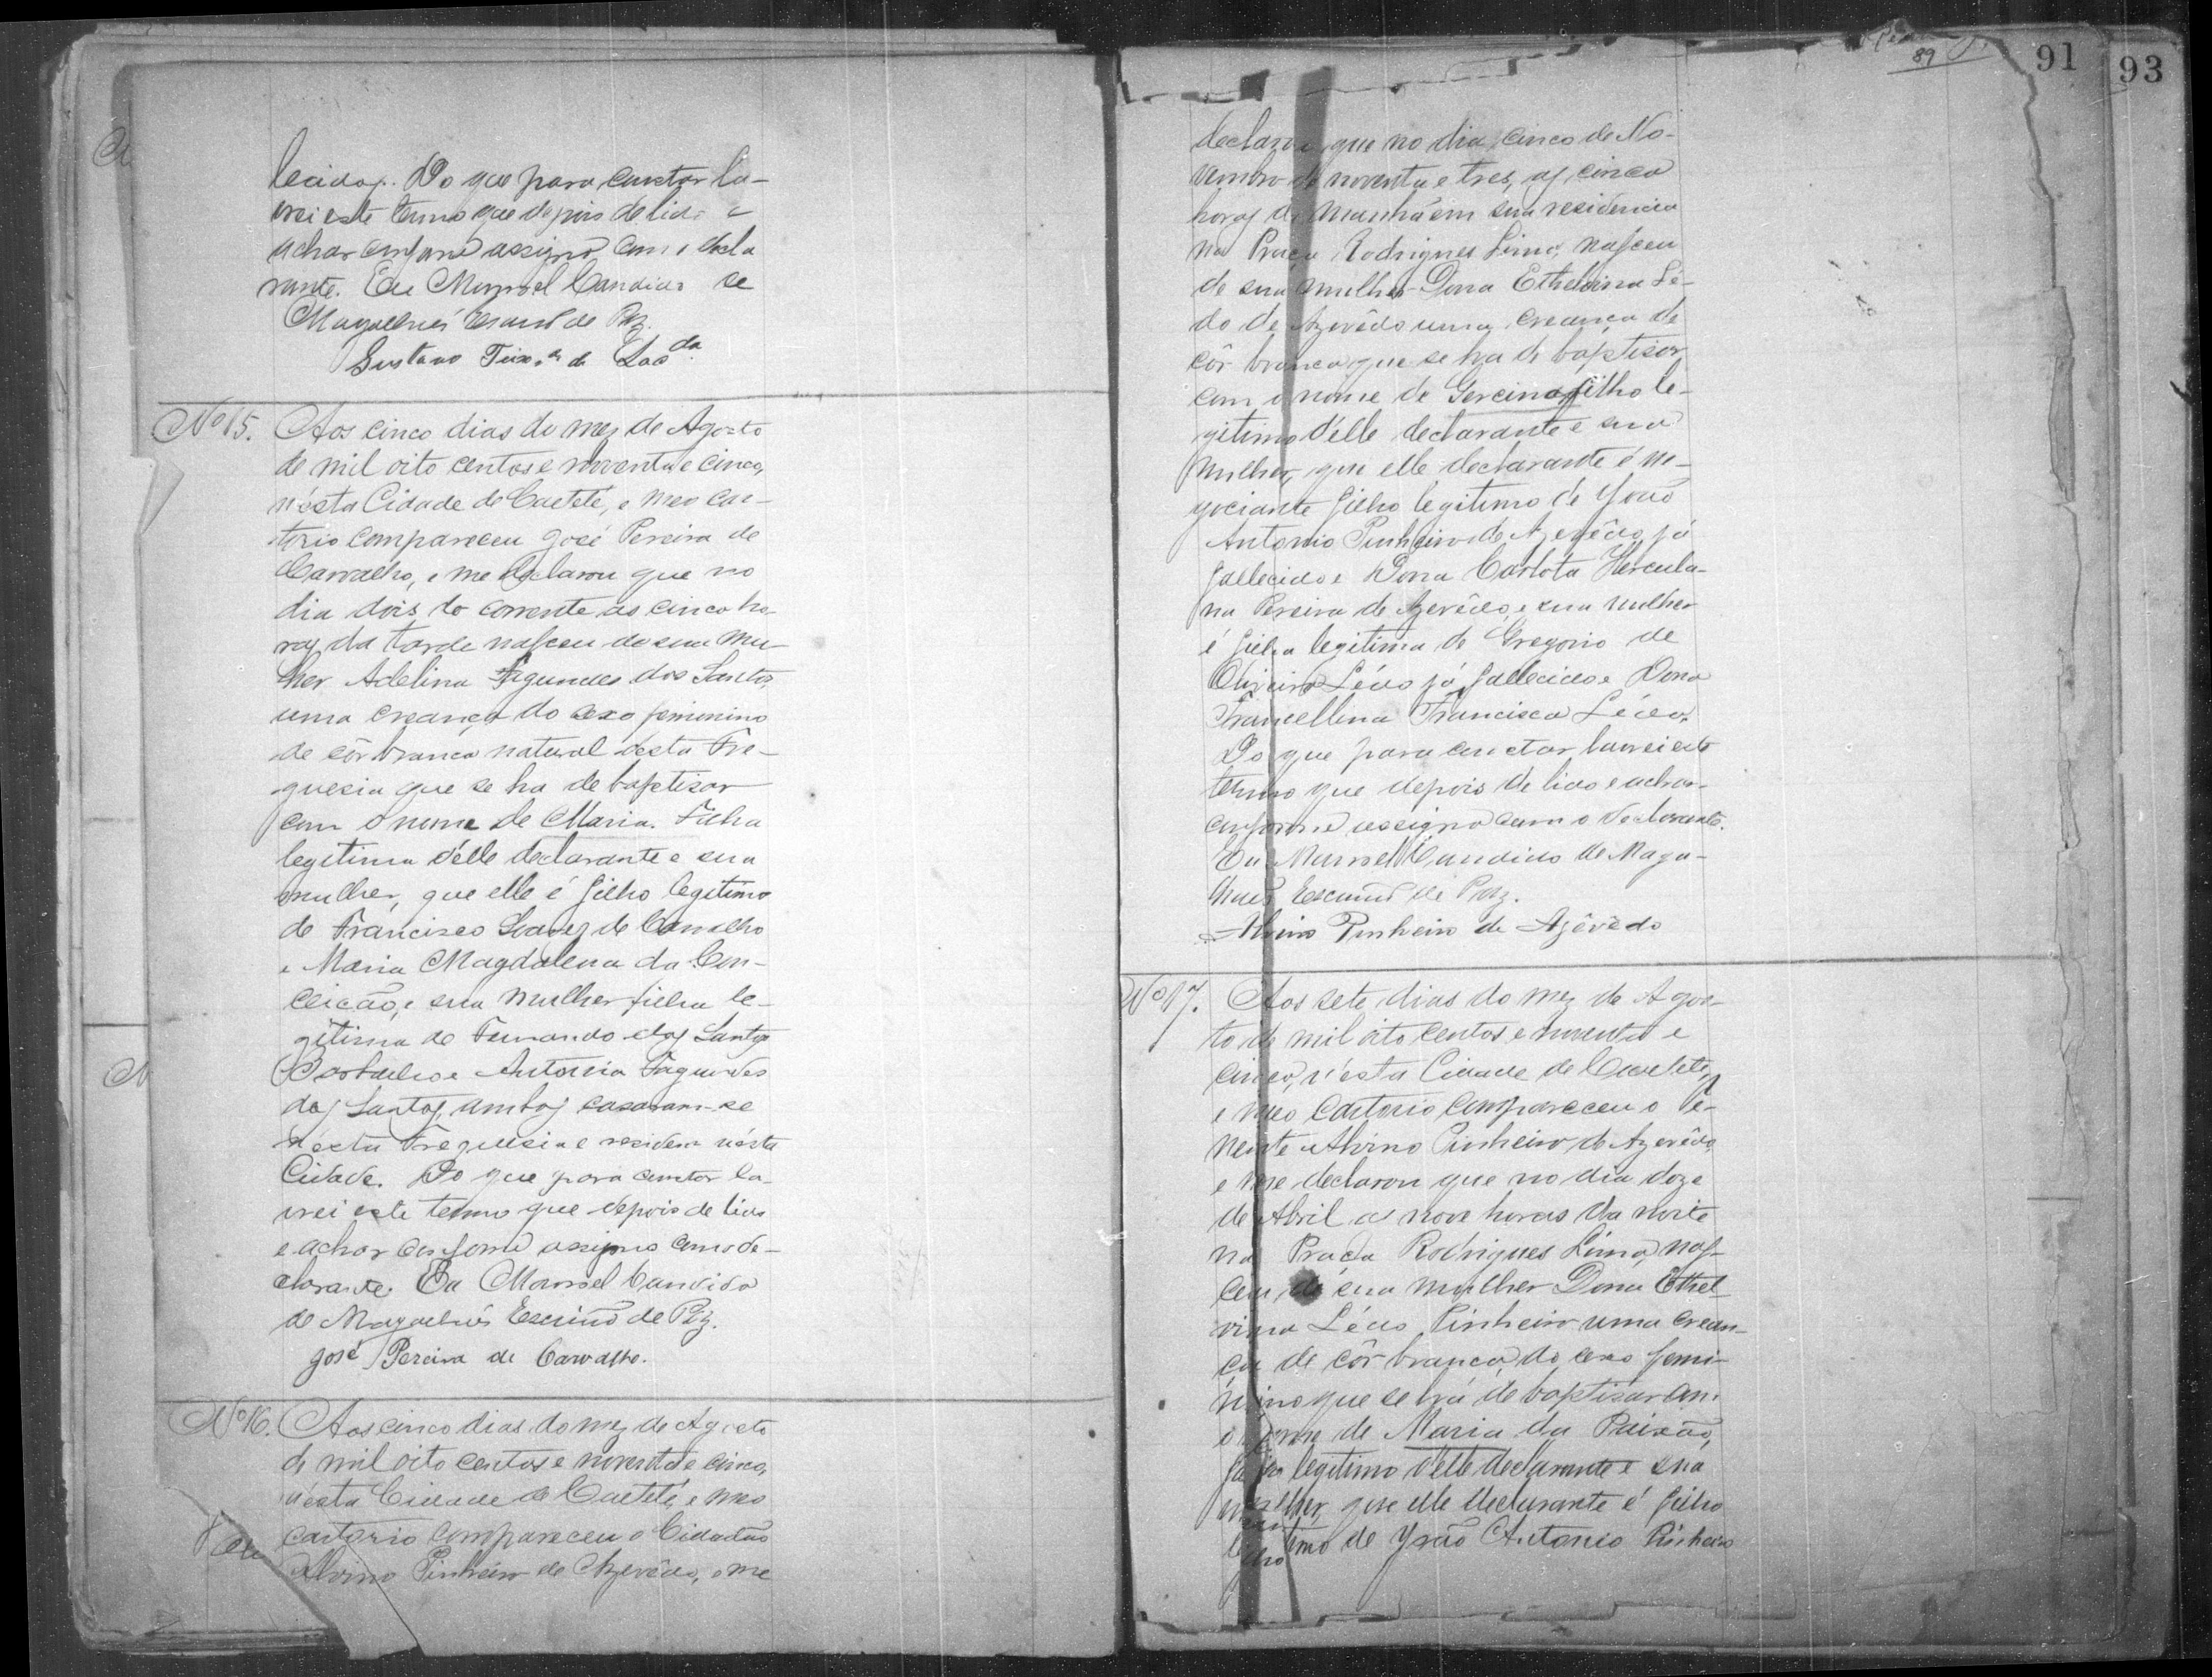 lecidos. Do que para constar la-
vrei este termo que depois de lido e
achar conforme assigno com o decla
rante. Eu Manoel Candido de
Magalhães Escrivão de Paz.
Gustavo Teixª de Lacda
Nº 15. Aos cinco dias do mez de Agosto
de mil oito centos e noventa e cinco,
n'esta Cidade de Caeteté, e meo car-
torio compareceu José Pereira de
Carvalho, e me declarou que no
dia dois do corrente as cinco ho-
ras da tarde nasceu de sua mu-
lher Adelina Fagundes dos Santos,
uma creança do sexo feminino
de côr branca natural desta Fre-
guesia que se ha de baptisar
com o nome de Maria. Filha
legitima d'elle declarante e sua
mulher, que elle é filho legitimo
de Francisco de Carvalho
e Maria Magdalena da Con-
ceicão, e sua mulher filha le-
gitima de Fernando dos Santos
e Antonia Fagundes
dos Santos, ambos casaram-se
n'esta Freguesia e residem n'esta
Cidade. Do que para constar la-
vrei este termo que depois de lido
e achar conforme assigno com o de-
clarante. Eu Manoel Candido
de Magalhães Escrivão de Paz.
José Pereira de Carvalho.
Nº 16. Aos cinco dias do mez de Agosto
de mil oito centos e noventa e cinco,
n'esta Cidade de Caeteté, e meo
cartorio compareceu o Cidadão
Alvino Pinheiro de Azevêdo, e me
89
91
93
declarou que no dia cinco de No-
vembro de noventa e tres, as cinco
horas da manhã em sua residencia
na Praça Rodrigues Lima, nasceu
de sua mulher Dona Ethelvina Lé-
do de Azevêdo uma creança de
côr branca que se ha de baptisar
com o nome de Gercino, filho le-
gitimo d'elle declarante e sua
mulher, que elle declarante é ne-
gociante filho legitimo de João
Antonio Pinheiro de Azevêdo, já
fallecido e Dona Carlota Hercula-
na Pereira de Azevêdo, e sua mulher
é filha legitima de Gregorio de
Oliveira Lédo já fallecido e Dona
Francellina Francisca Lédo.
Do que para constar lavrei este
termo que depois de lido e achar
conforme assigno com o declarante.
Eu Manoel Candido de Maga-
lhães Escrivão de Paz.
Alvino Pinheiro de Azêvêdo
Nº 17. Aos sete dias do mez de Agos-
to de mil oito centos e noventa e
cinco, n'esta Cidade de Caeteté,
e meo cartorio compareceu o Te-
nente Alvino Pinheiro de Azevêdo,
e me declarou que no dia doze
de Abril as nove horas da noite
na Praça Rodrigues Lima, nas-
ceu de sua mulher Dona Ethel-
vina Lédo Pinheiro uma crean-
ça de côr branca, do sexo femi-
nino que se ha de baptisar com
o nome de Maria da Paixão,
filho legitimo d'elle declarante e sua
mulher, que elle declarante é filho
legitimo de João Antonio Pinheiro